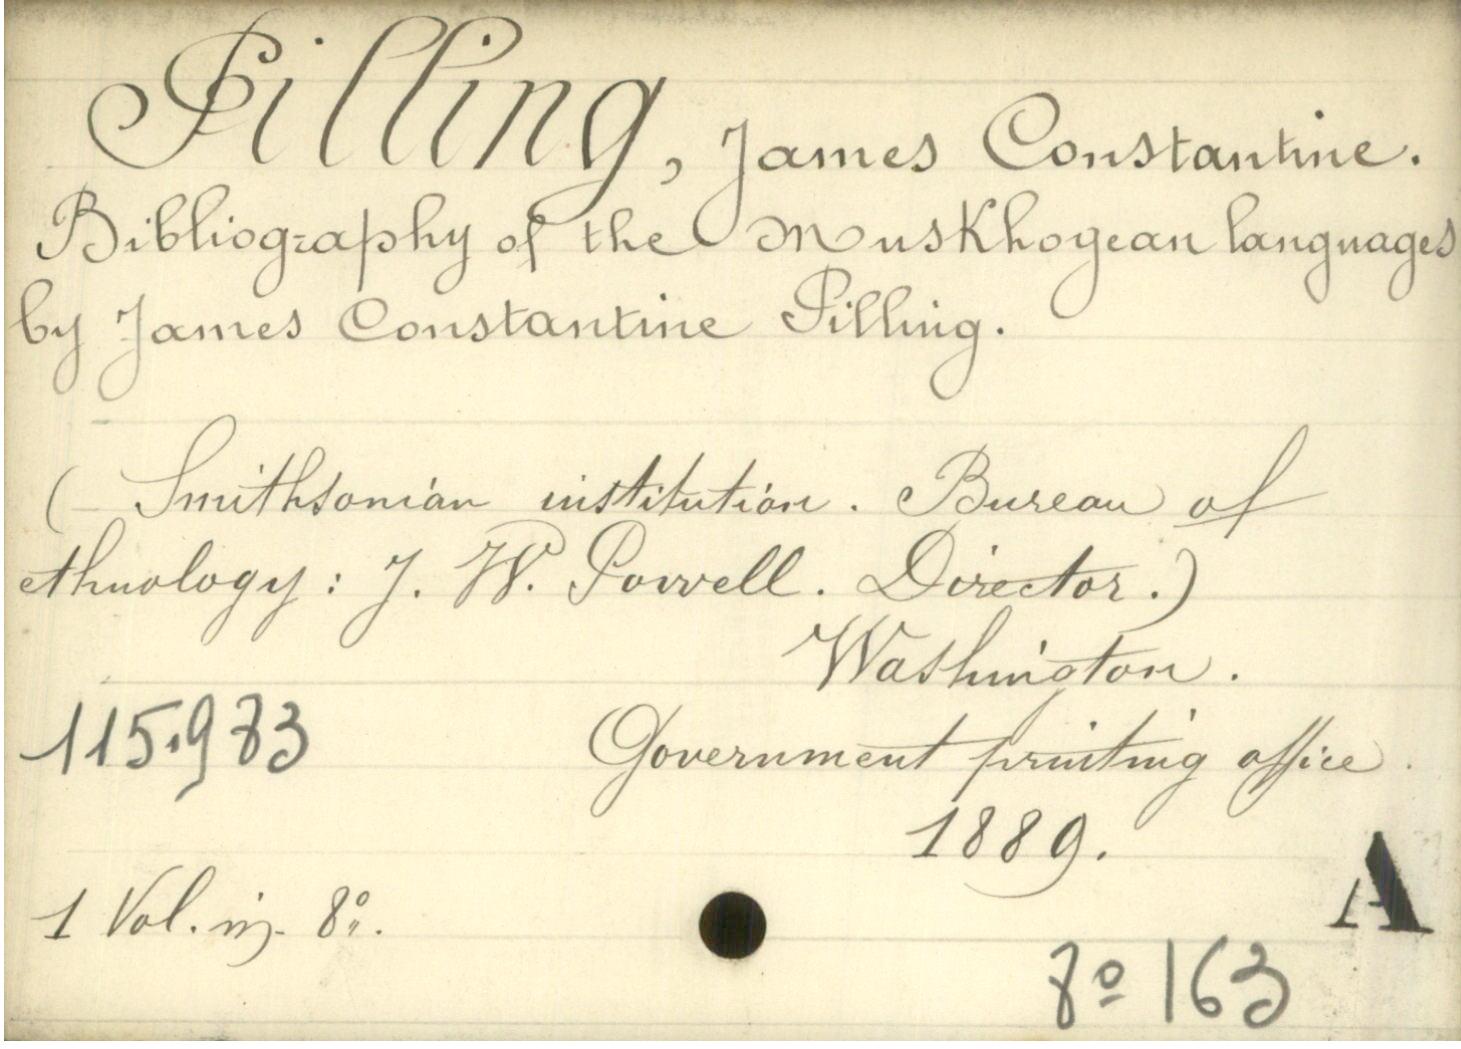 Pilling, James Constantine.
Bibliography of the Muskhogean languages
by James Constantine Pilling.
( Smithsonian institution. Bureau of
ethnology : J. W. Powell. Director.)
Washington.
115.983
Government printing office.
1889.
A
1 Vol. in-8º.
8º 163